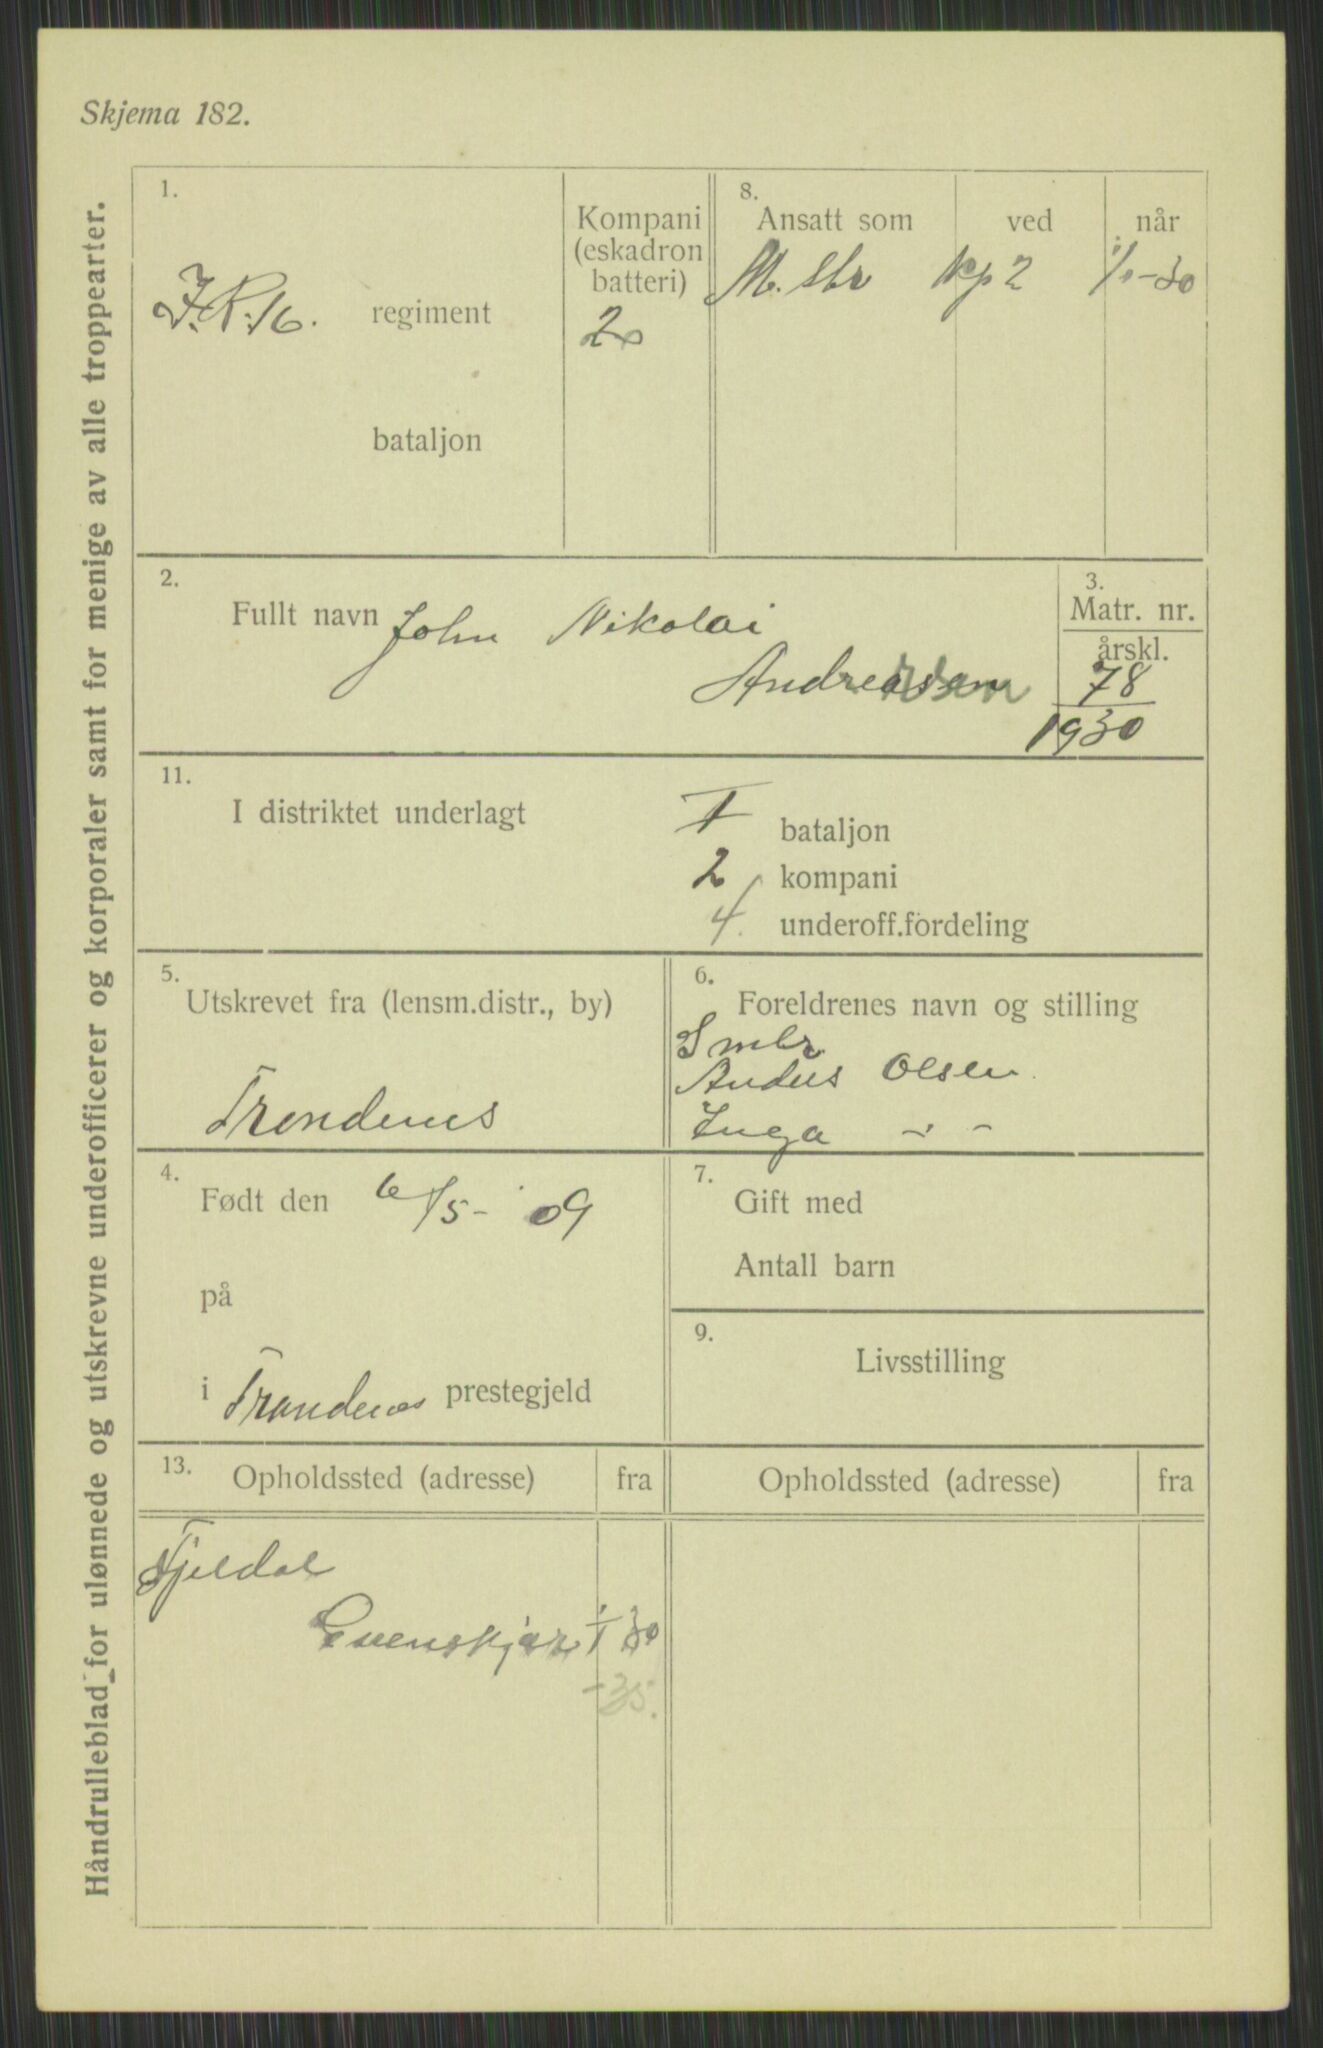 Skjema 182.
Håndrulleblad for ulønnede og utskrevne underofficerer og korporaler samt for menige av alle troppearter.
1.
J.R.16. regiment
bataljon
Kompani
(eskadron
batteri)
2
8.
Ansatt som ved når
kp 2 1/1-30
2.
Fullt navn John Nikolai
3.
Matr. nr.
årskl.
78
1930
11.
I distriktet underlagt
I bataljon
2 kompani
4. underoff.fordeling
5.
Utskrevet fra (lensm.distr., by)
Trondenes
6.
Foreldrenes navn og stilling
Smbr
Anders Olsen
Inga - " -
4.
Født den 6/5- 09
på
i Trondenes prestegjeld
7.
Gift med
Antall barn
9.
Livsstilling
13.
Opholdssted (adresse) fra Opholdssted (adresse) fra
Fjeldal
Evenskjær 1/1 30
-35.